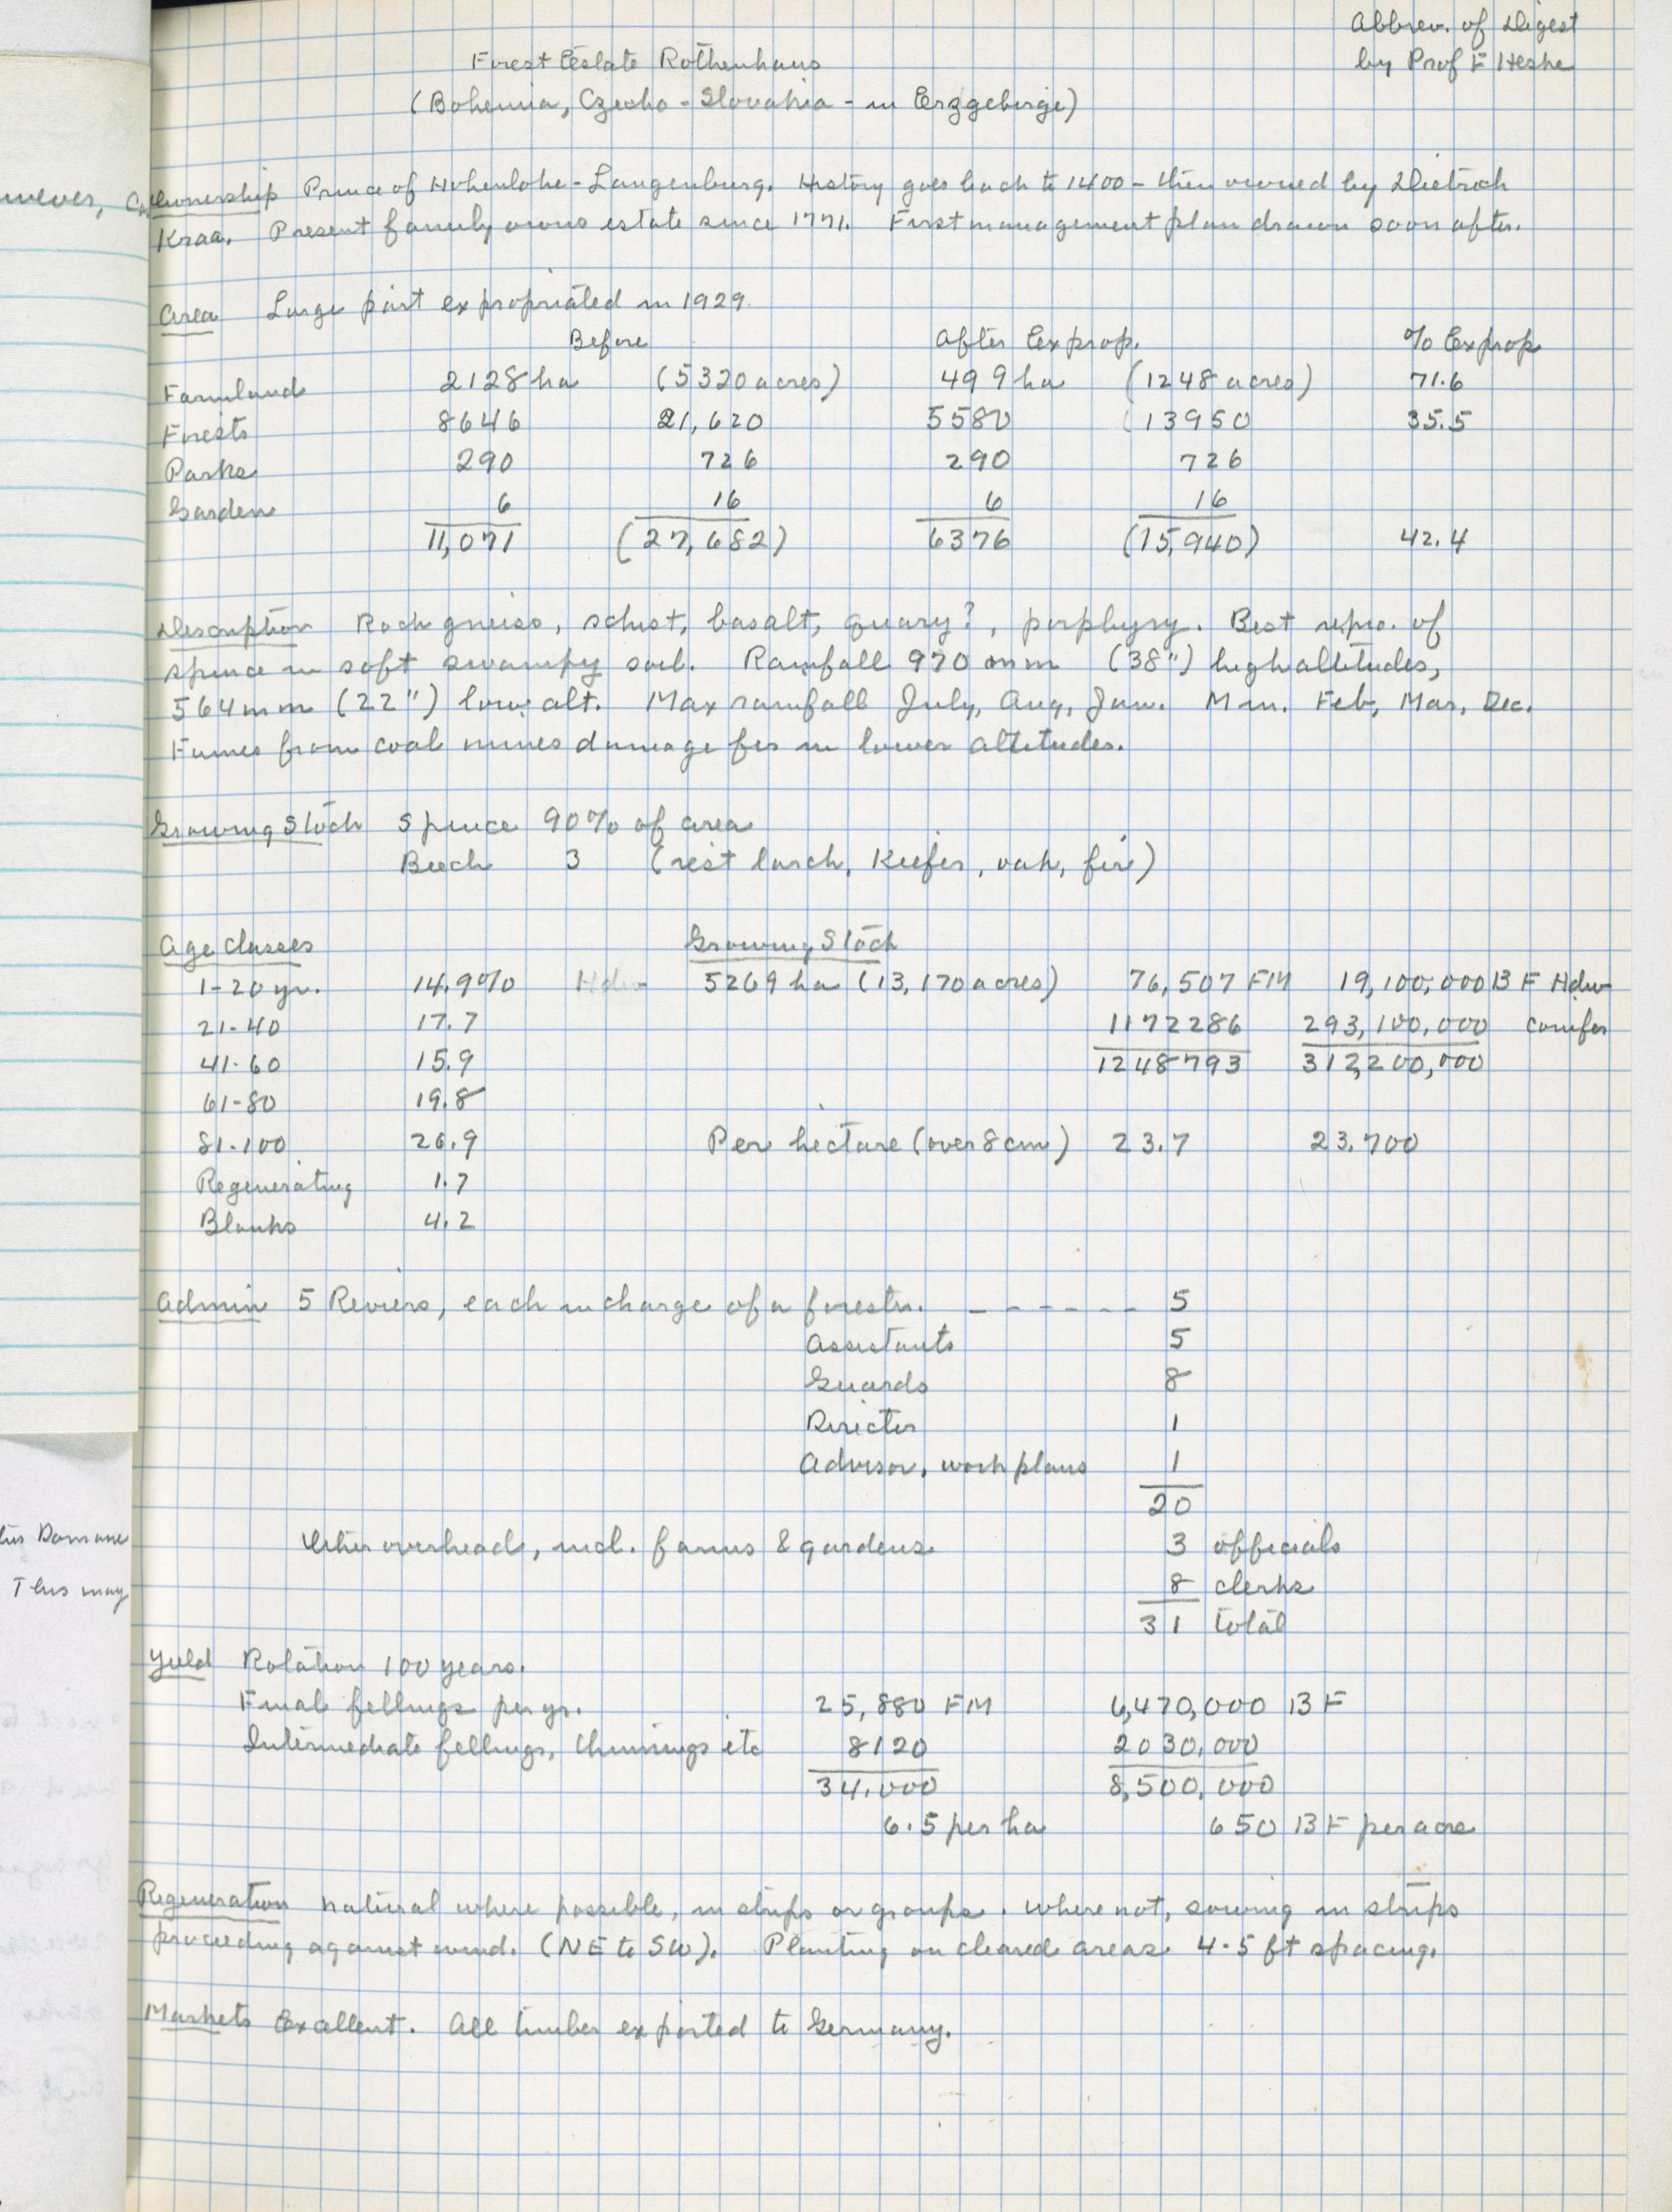 Abbrev. of Digest
by Prof F Heske
Forest Estate Rothenhaus
(Bohemia, Czecho-Slovakia - in Erzgebirge)
Ownership Prince of Hohenlohe-Langenburg. History goes back to 1400 - then owned by Dietrich
Kraa. Present family owns estate since 1771. First management plan drawn soon after.
Area Large part expropriated in 1929.
Before After Exprop. % Exprop
Farmland 2128 ha (5320 acres) 499 ha (1248 acres) 71.6
Forests 8646 21,620 5580 (13950 35.5
Parks 290 726 290 726
Garden 6 16 6 16
11,071 (27,682) 6376 (15,940) 42.4
Description Rock gneiss, schist, basalt, quary?, porphyry. Best repro. of
spruce in soft swampy soil. Rainfall 970 mm (38") high altitudes,
564 mm (22") low alt. Max rainfall July, Aug, Jan. Min. Feb, Mar, Dec.
Fumes from coal mines damage firs in lower altitudes.
Growing Stock Spruce 90% of area
Beech 3 (rest larch, Kiefer, oak, fir)
Age Classes Growing Stock
1-20 yr. 14.9% Hdw 5269 ha (13,170 acres) 76,507 FM 19,100,000 BF Hdw
21-40 17.7 1172286 293,100,000 conifer
41-60 15.9 1248793 312,200,000
61-80 19.8
81-100 26.9 Per hectare (over 8 cm) 23.7 23.700
Regenerating 1.7
Blanks 4.2
Admin 5 Reviers, each in charge of a forester. - - - - - - 5
Assistants 5
Guards 8
Director 1
Advisor, work plans 1
20
Other overhead, incl. farms & gardens 3 officials
8 clerks
31 total
Yield Rotation 100 years.
Final fellings per yr. 25,880 FM 6,470,000 BF
Intermediate fellings, thinnings etc 8120 2030,000
34,000 8,500,000
6.5 per ha 650 BF per acre
Regeneration natural where possible, in strips or groups. Where not, sowing in strips
proceeding against wind. (NE to SW). Planting on cleared areas. 4-5 ft spacing.
Markets Excellent. All timber exported to Germany.